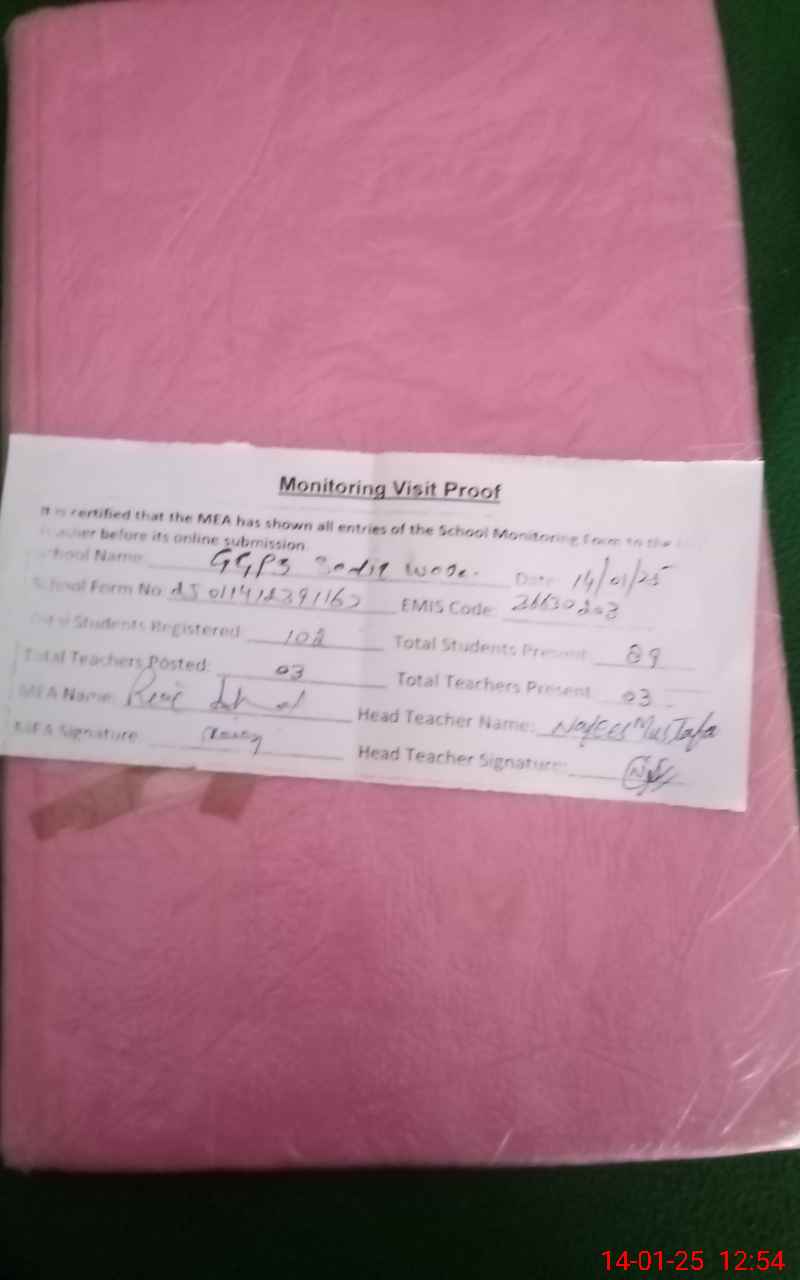 Monitoring Visit Proof
It is certified that the MEA has shown all entries of the School Monitoring Form to the
Teacher before its online submission.
School Name: GGPS Date: 14/01/25
School Form No. EMIS Code: 36630203
Total Students Registered: 102 Total Students Present: 89
Total Teachers Posted: 03 Total Teachers Present: 03
MEA Name: Head Teacher Name: Nafees Mustafa
MEA Signature: Head Teacher Signature:
14-01-25 12:54